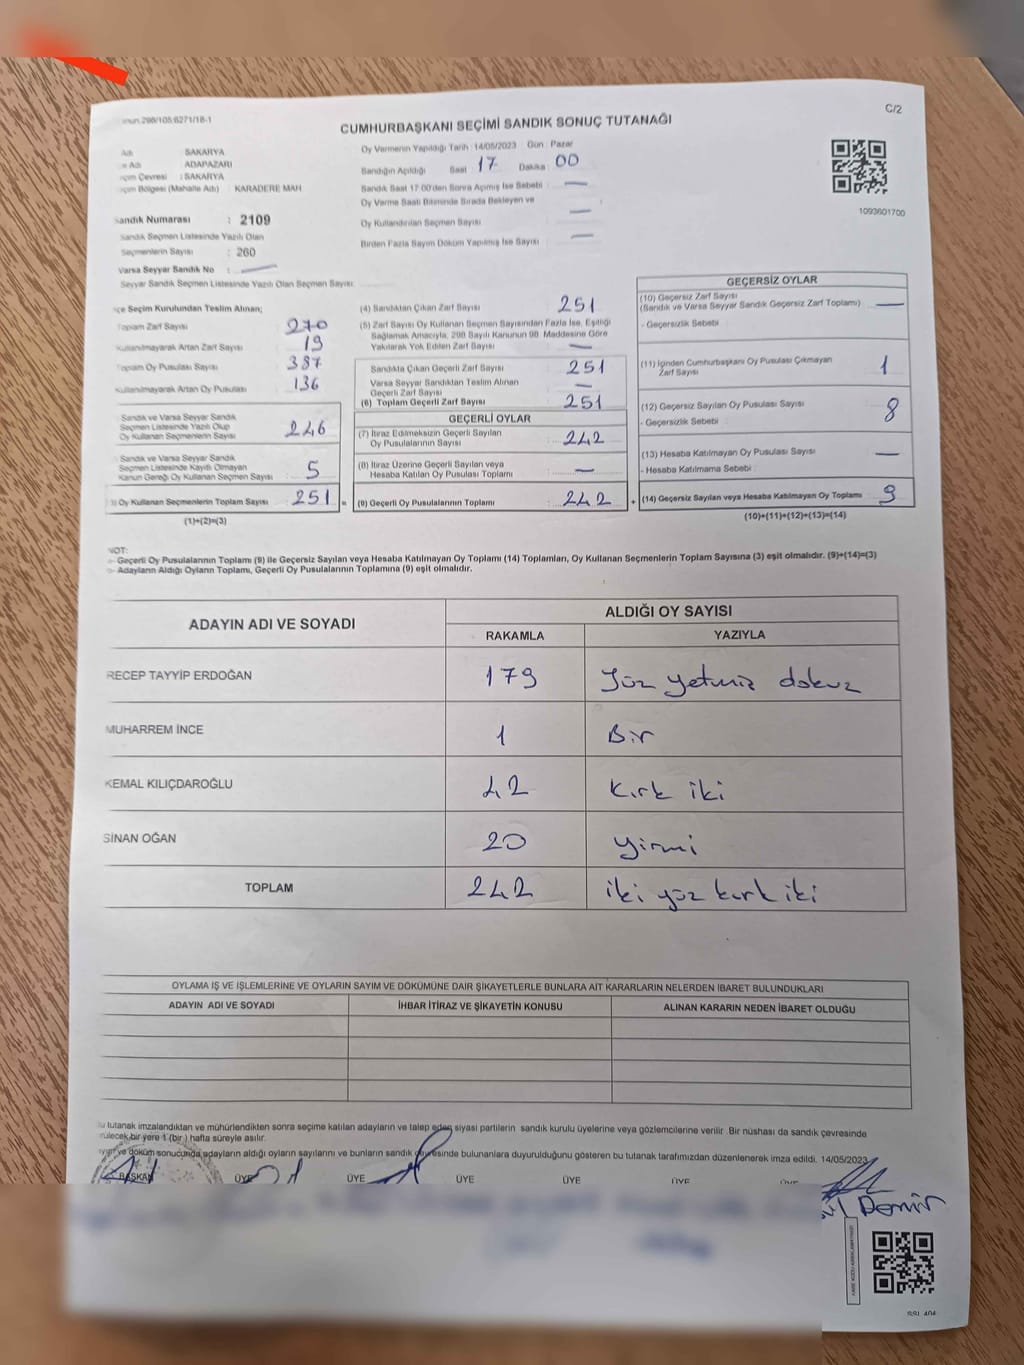 C/2
CUMHURBAŞKANI SEÇİMİ SANDIK SONUÇ TUTANAĞI
1093601700
Adı SAKARYA
Adı ADAPAZARI
Çevresi : SAKARYA
Bölgesi (Mahalle Adı) : KARADERE MAH
Sandık Numarası : 2109
Sandık Seçmen Listesinde Yazılı Olan
Seçmenlerin Sayısı : 260
Varsa Seyyar Sandık No : —
Seyyar Sandık Seçmen Listesinde Yazılı Olan Seçmen Sayısı
Oy Vermenin Yapıldığı Tarih :14/05/2023 Gün : Pazar
Sandığın Açıldığı Saat : 17 Dakika : 00
Sandık Saat 17:00'den Sonra Açılmış İse Sebebi : —
Oy Verme Saati Bitiminde Sırada Bekleyen ve
Oy Kullandırılan Seçmen Sayısı : —
Birden Fazla Sayım Döküm Yapılmış İse Sayısı : —
İlçe Seçim Kurulundan Teslim Alınan;
Toplam Zarf Sayısı 270
Kullanılmayarak Artan Zarf Sayısı : 19
Toplam Oy Pusulası Sayısı 387
Kullanılmayarak Artan Oy Pusulası : 136
Sandık ve Varsa Seyyar Sandık
Seçmen Listesinde Yazılı Olup
Oy Kullanan Seçmenlerin Sayısı : 246
Sandık ve Varsa Seyyar Sandık
Seçmen Listesinde Kayıtlı Olmayan
Kanun Gereği Oy Kullanan Seçmen Sayısı : 5
Oy Kullanan Seçmenlerin Toplam Sayısı : 251 =
(1)+(2)=(3)
(4) Sandıktan Çıkan Zarf Sayısı : 251
(5) Zarf Sayısı Oy Kullanan Seçmen Sayısından Fazla İse, Eşitliği
Sağlamak Amacıyla, 298 Sayılı Kanunun 98. Maddesine Göre
Yakılarak Yok Edilen Zarf Sayısı : —
Sandıkta Çıkan Geçerli Zarf Sayısı : 251
Varsa Seyyar Sandıktan Teslim Alınan
Geçerli Zarf Sayısı : —
(6) Toplam Geçerli Zarf Sayısı : 251
GEÇERLİ OYLAR
(7) İtiraz Edilmeksizin Geçerli Sayılan
Oy Pusulalarının Sayısı : 242
(8) İtiraz Üzerine Geçerli Sayılan veya
Hesaba Katılan Oy Pusulası Toplamı : —
(9) Geçerli Oy Pusulalarının Toplamı : 242 +
GEÇERSİZ OYLAR
(10) Geçersiz Zarf Sayısı
(Sandık ve Varsa Seyyar Sandık Geçersiz Zarf Toplamı) : —
- Geçersizlik Sebebi :
(11) İçinden Cumhurbaşkanı Oy Pusulası Çıkmayan
Zarf Sayısı : 1
(12) Geçersiz Sayılan Oy Pusulası Sayısı : 8
- Geçersizlik Sebebi :
(13) Hesaba Katılmayan Oy Pusulası Sayısı : —
- Hesaba Katılmama Sebebi :
(14) Geçersiz Sayılan veya Hesaba Katılmayan Oy Toplamı : 9
(10)+(11)+(12)+(13)=(14)
NOT:
- Geçerli Oy Pusulalarının Toplamı (9) ile Geçersiz Sayılan veya Hesaba Katılmayan Oy Toplamı (14) Toplamları, Oy Kullanan Seçmenlerin Toplam Sayısına (3) eşit olmalıdır. (9)+(14)=(3)
- Adayların Aldığı Oyların Toplamı, Geçerli Oy Pusulalarının Toplamına (9) eşit olmalıdır.
ADAYIN ADI VE SOYADI ALDIĞI OY SAYISI
RAKAMLA YAZIYLA
RECEP TAYYİP ERDOĞAN 179 Yüz yetmiz dokuz
MUHARREM İNCE 1 Bir
KEMAL KILIÇDAROĞLU 42 Kırk iki
SİNAN OĞAN 20 yirmi
TOPLAM 242 iki yüz kırk iki
OYLAMA İŞ VE İŞLEMLERİNE VE OYLARIN SAYIM VE DÖKÜMÜNE DAİR ŞİKAYETLERLE BUNLARA AİT KARARLARIN NELERDEN İBARET BULUNDUKLARI
ADAYIN ADI VE SOYADI İHBAR İTİRAZ VE ŞİKAYETİN KONUSU ALINAN KARARIN NEDEN İBARET OLDUĞU
tutanak imzalandıktan ve mühürlendikten sonra seçime katılan adayların ve talep eden siyasi partilerin sandık kurulu üyelerine veya gözlemcilerine verilir. Bir nüshası da sandık çevresinde
bir yere 1 (bir) hafta süreyle asılır.
ve döküm sonucunda adayların aldığı oyların sayılarını ve bunların sandık çevresinde bulunanlara duyurulduğunu gösteren bu tutanak tarafımızdan düzenlenerek imza edildi. 14/05/2023
BAŞKAN ÜYE ÜYE ÜYE ÜYE ÜYE ÜYE
Demir